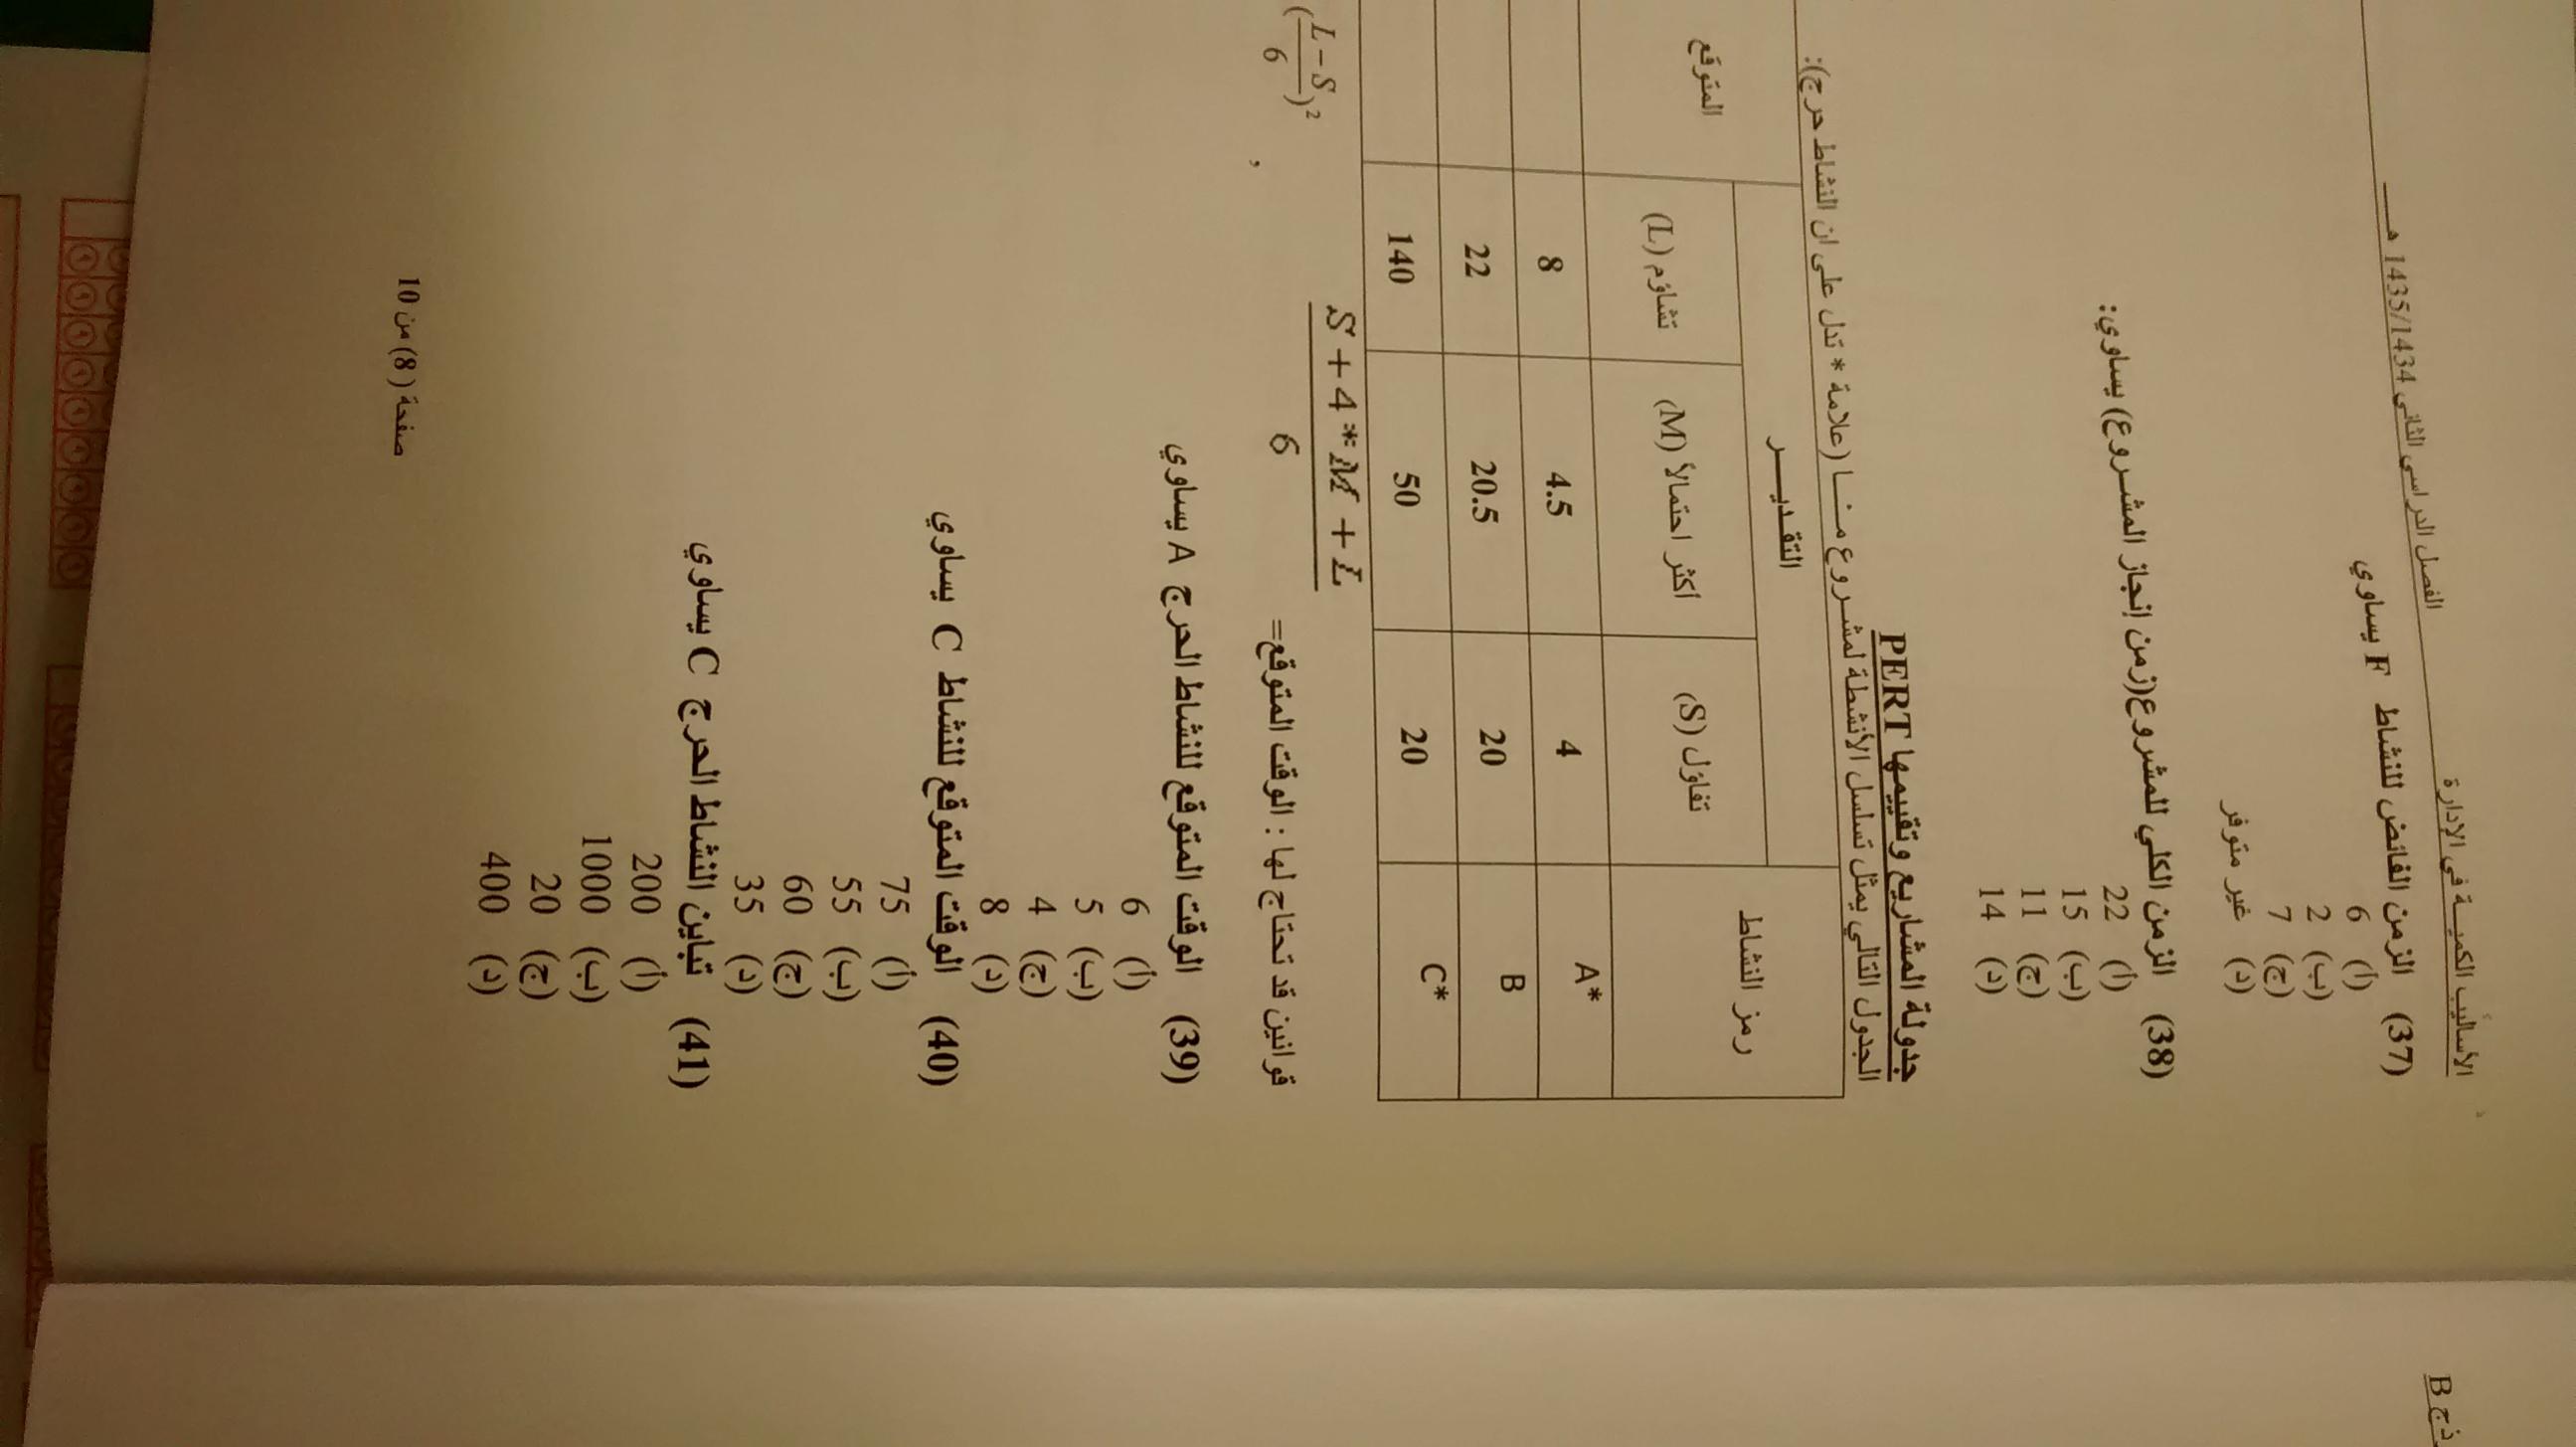 الأساليب الكمية في الإدارة
الفصل الدراسي الثاني 1435/1434 هـ
37) الزمن الفائض للنشاط F يساوي
أ) 6
ب) 2
ج) 7
د) غير متوفر
38) الزمن الكلي للمشروع(زمن إنجاز المشروع) يساوي:
أ) 22
ب) 15
ج) 11
د) 14
جدولة المشاريع وتقييمها PERT
الجدول التالي يمثل تسلسل الأنشطة لمشروع منا (علامة * تدل على ان النشاط حرج):
رمز النشاط التقدير المتوقع
تفاؤل (S) أكثر احتمالاً (M) تشاؤم (L)
A* 4 4.5 8
B 20 20.5 22
C* 20 50 140
قوانين قد تحتاج لها : الوقت المتوقع= S + 4 * M + L / 6 , (L - S / 6)²
39) الوقت المتوقع للنشاط الحرج A يساوي
أ) 6
ب) 5
ج) 4
د) 8
40) الوقت المتوقع للنشاط C يساوي
أ) 75
ب) 55
ج) 60
د) 35
41) تباين النشاط الحرج C يساوي
أ) 200
ب) 1000
ج) 20
د) 400
صفحة (8) من 10
ذج B